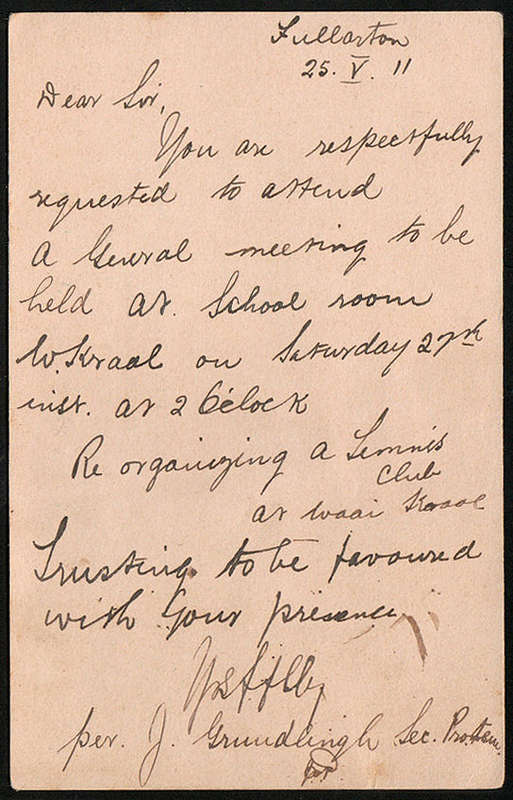 Fullarton
25. V. 11
Dear Sir,
You are respectfully
requested to attend
a General meeting to be
held at. School room
W. Kraal on Saturday 27th
inst. at 2 O'clock
Re organizing a Tennis
Club
at Waai Kraal
Trusting to be favoured
with your presence
Yrs fflly
per. J. Grundlingh Sec. Pro. tem.